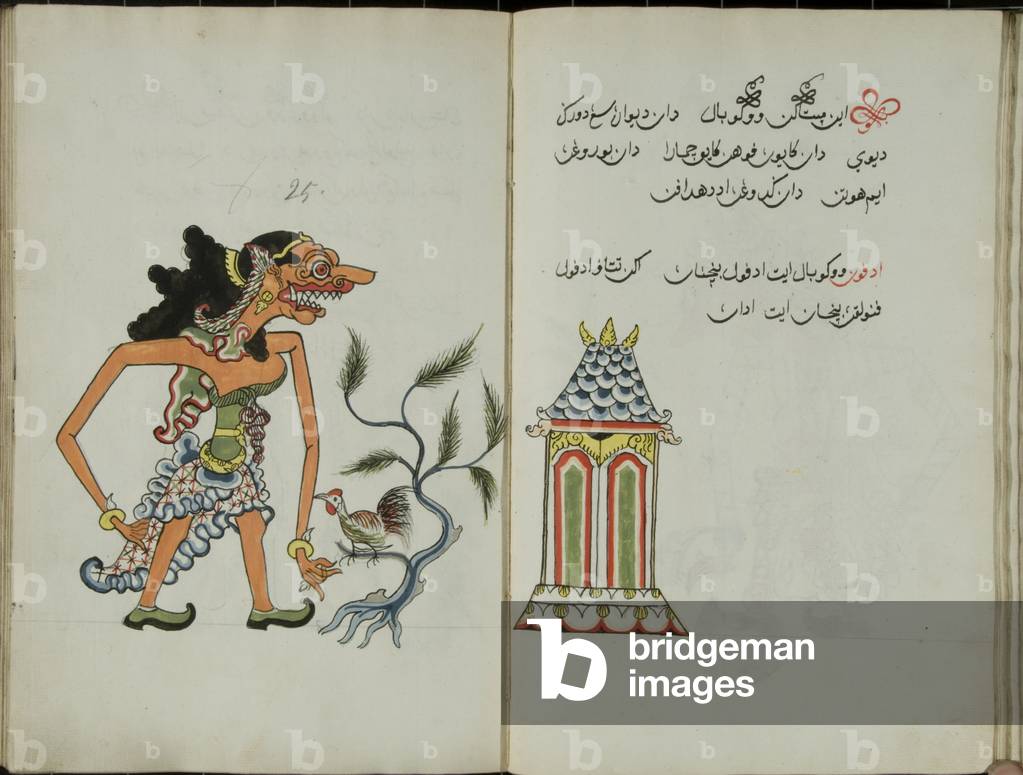 25.
اين مپتاكن ووكو بال دان ديوان سغ دورك
ديوي دان كايون فوهن كايو چمارا دان بوروغن
ايم هوتن دان كدوغن اددهدافن
ادفون ووكو بال ايت ادفول بنچنان اكن تتاف ادفول
فنولق بنچنان ايت ادان
bridgeman
images